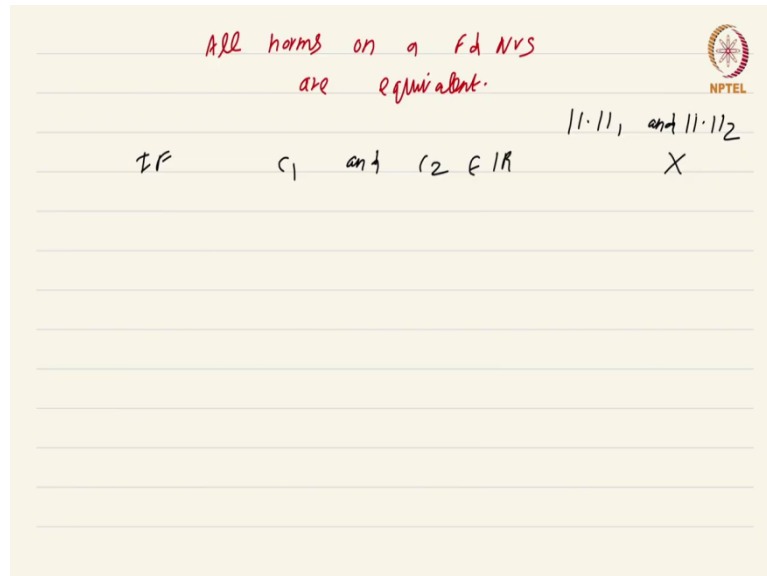 All norms on a Fd NVS
are equivalent.
NPTEL
||·||₁ and ||·||₂
IF C₁ and C₂ ∈ ℝ X